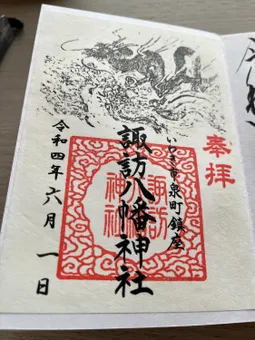 奉拝
いわき市泉町鎮座
諏訪八幡神社
令和四年六月一日
諏訪
神社